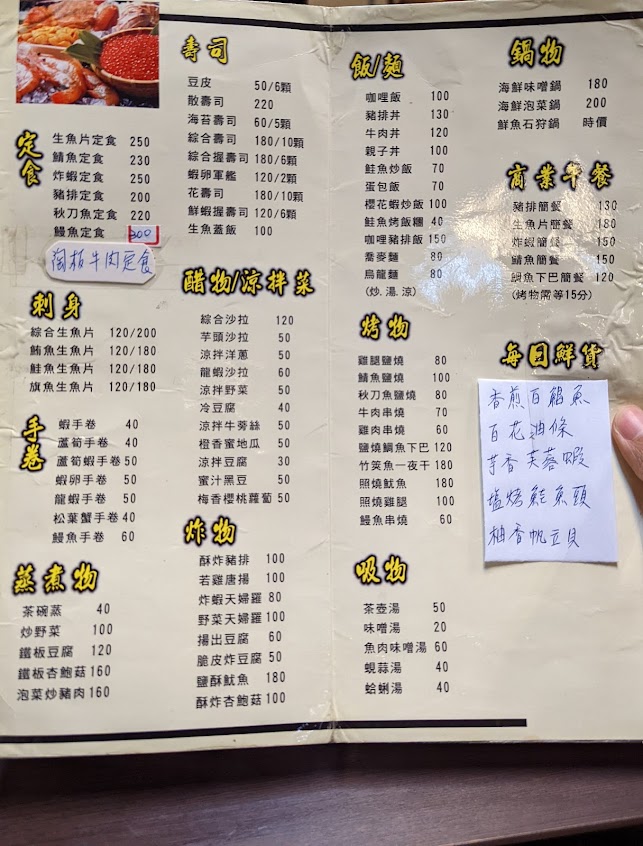 定食
生魚片定食 250
鯖魚定食 230
炸蝦定食 250
豬排定食 200
秋刀魚定食 220
鰻魚定食 300
陶板牛肉定食
刺身
綜合生魚片 120/200
鮪魚生魚片 120/180
鮭魚生魚片 120/180
旗魚生魚片 120/180
手卷
蝦手卷 40
蘆筍手卷 40
蘆筍蝦手卷 50
蝦卵手卷 50
龍蝦手卷 50
松葉蟹手卷 40
鰻魚手卷 60
蒸煮物
茶碗蒸 40
炒野菜 100
鐵板豆腐 120
鐵板杏鮑菇 160
泡菜炒豬肉 160
壽司
豆皮 50/6顆
散壽司 220
海苔壽司 60/5顆
綜合壽司 180/10顆
綜合握壽司 180/6顆
蝦卵軍艦 120/2顆
花壽司 180/10顆
鮮蝦握壽司 120/6顆
生魚蓋飯 100
醋物/涼拌菜
綜合沙拉 120
芋頭沙拉 50
涼拌洋蔥 50
龍蝦沙拉 60
涼拌野菜 50
冷豆腐 40
涼拌牛蒡絲 50
橙香蜜地瓜 50
涼拌豆腐 30
蜜汁黑豆 50
梅香櫻桃蘿蔔 50
炸物
酥炸豬排 100
若雞唐揚 100
炸蝦天婦羅 80
野菜天婦羅 100
揚出豆腐 60
脆皮炸豆腐 50
鹽酥魷魚 180
酥炸杏鮑菇 100
飯/麵
咖哩飯 100
豬排丼 130
牛肉丼 120
親子丼 100
鮭魚炒飯 70
蛋包飯 70
櫻花蝦炒飯 100
鮭魚烤飯糰 40
咖哩豬排飯 150
蕎麥麵 80
烏龍麵 80
(炒.湯.涼)
烤物
雞腿鹽燒 80
鯖魚鹽燒 100
秋刀魚鹽燒 80
牛肉串燒 70
雞肉串燒 60
鹽燒鯛魚下巴 120
竹筴魚一夜干 180
照燒魷魚 180
照燒雞腿 100
鰻魚串燒 60
吸物
茶壺湯 50
味噌湯 20
魚肉味噌湯 60
蜆蒜湯 40
蛤蜊湯 40
鍋物
海鮮味噌鍋 180
海鮮泡菜鍋 200
鮮魚石狩鍋 時價
商業午餐
豬排簡餐 130
生魚片簡餐 150
炸蝦簡餐 150
鯖魚簡餐 150
鯛魚下巴簡餐 120
(烤物需等15分)
每日鮮貨
香煎白鯧魚
百花油條
芋香芙蓉蝦
塩烤鮭魚頭
柚香帆立貝